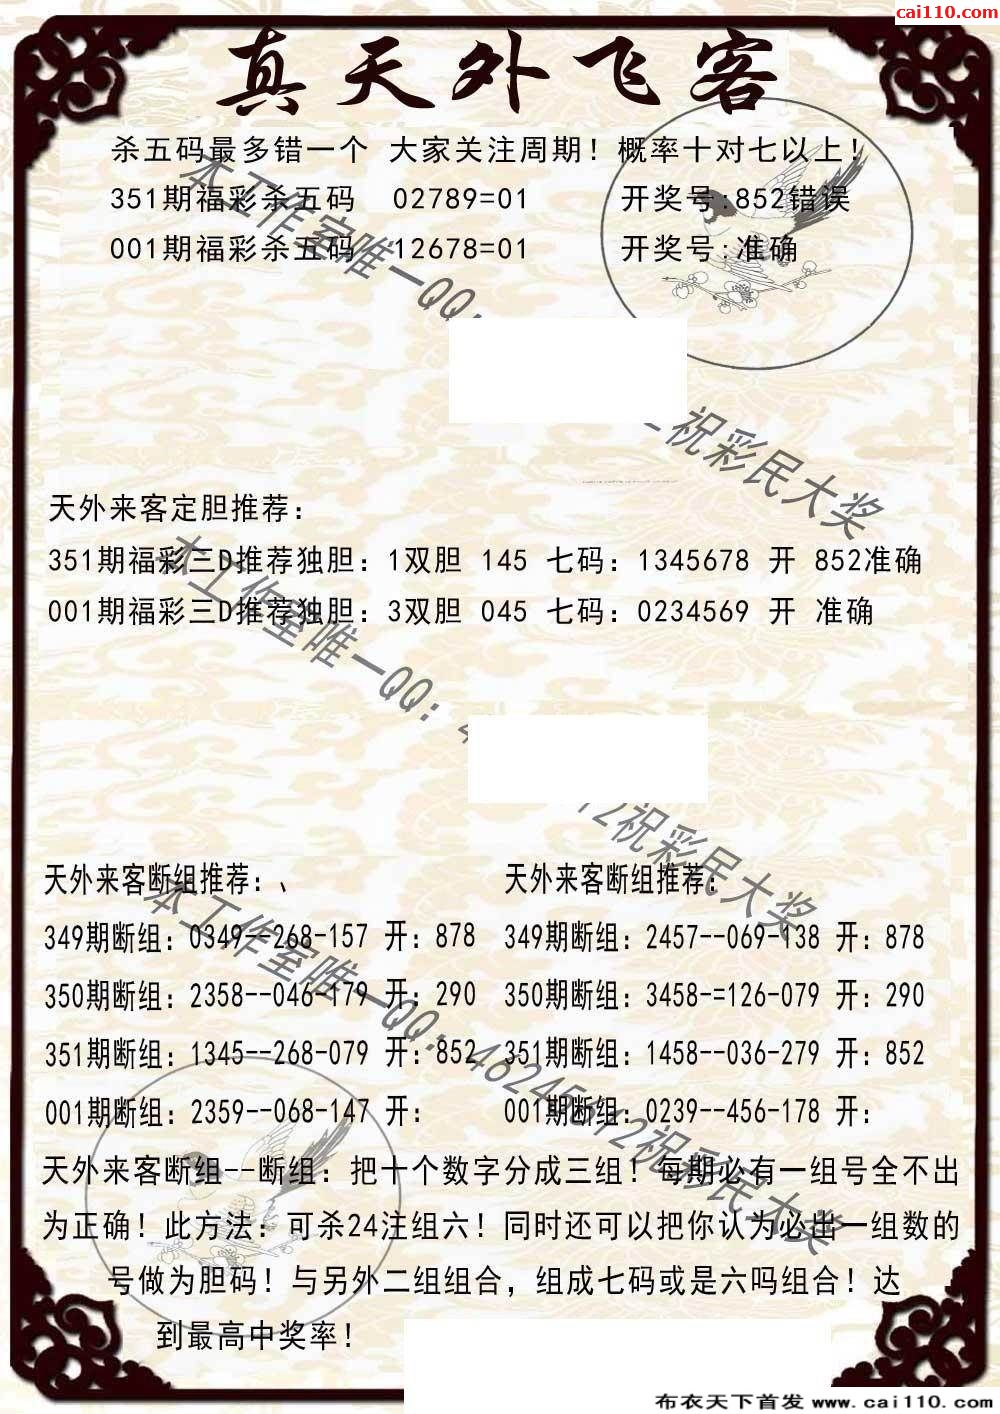 cai110.com
真天外飞客
杀五码最多错一个 大家关注周期！概率十对七以上！
351期福彩杀五码 02789=01 开奖号:852错误
001期福彩杀五码 12678=01 开奖号:准确
本工作室唯一QQ:
祝彩民大奖
天外来客定胆推荐：
351期福彩三D推荐独胆：1双胆 145 七码：1345678 开 852准确
001期福彩三D推荐独胆：3双胆 045 七码：0234569 开 准确
本工作室唯一QQ：4
12祝彩民大奖
天外来客断组推荐：、
349期断组：0349--268-157 开：878
350期断组：2358--046-179 开：290
351期断组：1345--268-079 开：852
001期断组：2359--068-147 开：
天外来客断组推荐：
349期断组：2457--069-138 开：878
350期断组：3458-=126-079 开：290
351期断组：1458--036-279 开：852
001期断组：0239--456-178 开：
本工作室唯一QQ：46245612祝彩民大奖
天外来客断组--断组：把十个数字分成三组！每期必有一组号全不出
为正确！此方法：可杀24注组六！同时还可以把你认为必出一组数的
号做为胆码！与另外二组组合，组成七码或是六吗组合！达
到最高中奖率！
布衣天下首发 www.cai110.com